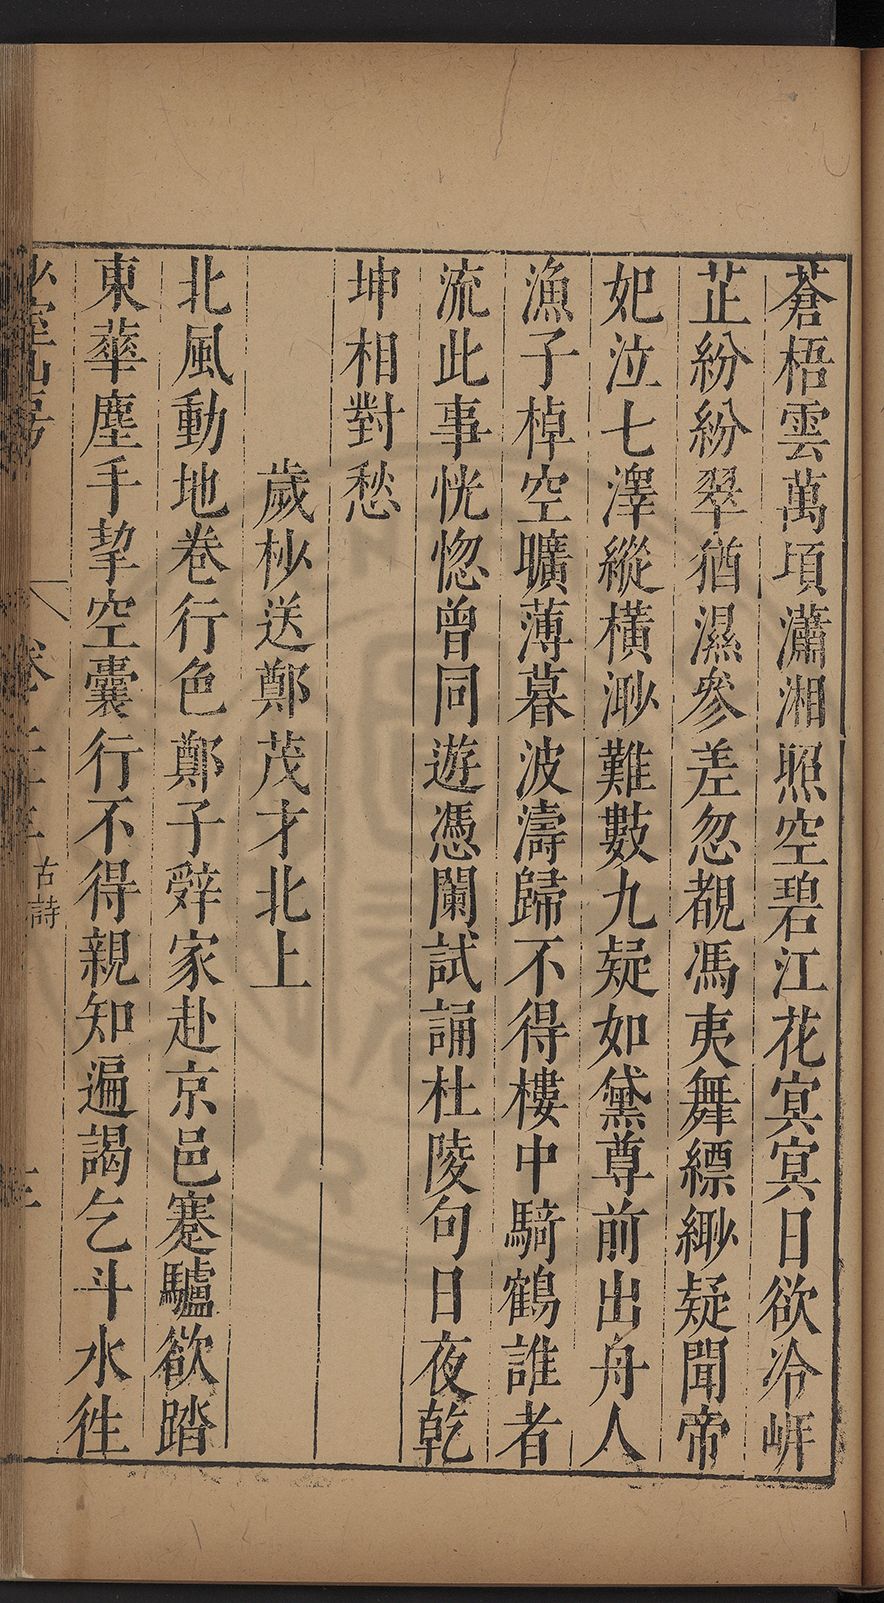 蒼梧雲萬頃瀟湘照空碧江花㝠㝠日欲冷岸
芷紛紛翠猶濕參差忽覩馮夷舞縹緲疑聞帝
妃泣七澤縱橫渺難數九疑如黛尊前出舟人
漁子棹空曠薄暮波濤歸不得樓中騎鶴誰者
流此事恍惚曾同遊憑闌試誦杜陵句日夜乾
坤相對愁
歲杪送鄭茂才北上
北風動地卷行色鄭子辤家赴京邑蹇驢欲踏
東華塵手挈空囊行不得親知遍謁乞斗水徃
少室山房
卷二十
古詩